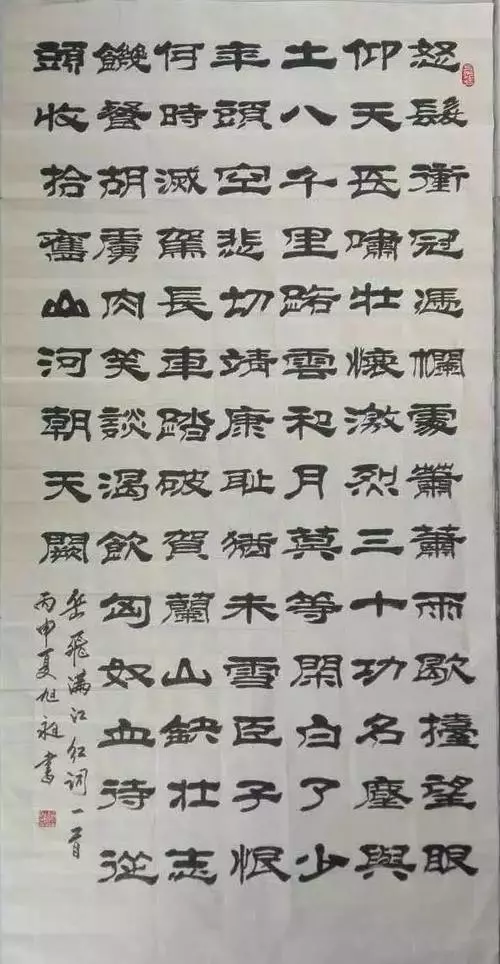 怒髮衝冠憑欄處蕭蕭雨歇擡望眼
仰天長嘯壯懷激烈三十功名塵與
土八千里路雲和月莫等閑白了少
年頭空悲切靖康耻猶未雪臣子恨
何時滅駕長車踏破賀蘭山缺壯志
饑餐胡虜肉笑談渴飲匈奴血待從
頭收拾舊山河朝天闕
岳飛滿江紅詞一首
丙申夏旭書